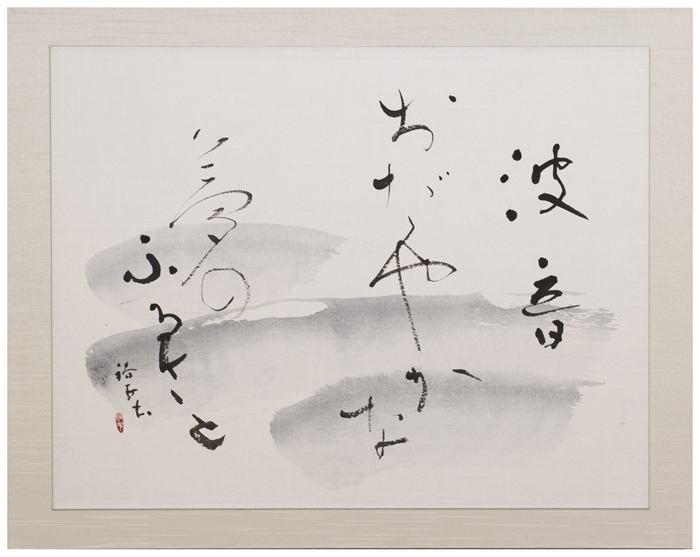 波音
おだやかな
夢の
ふるさと
裕子